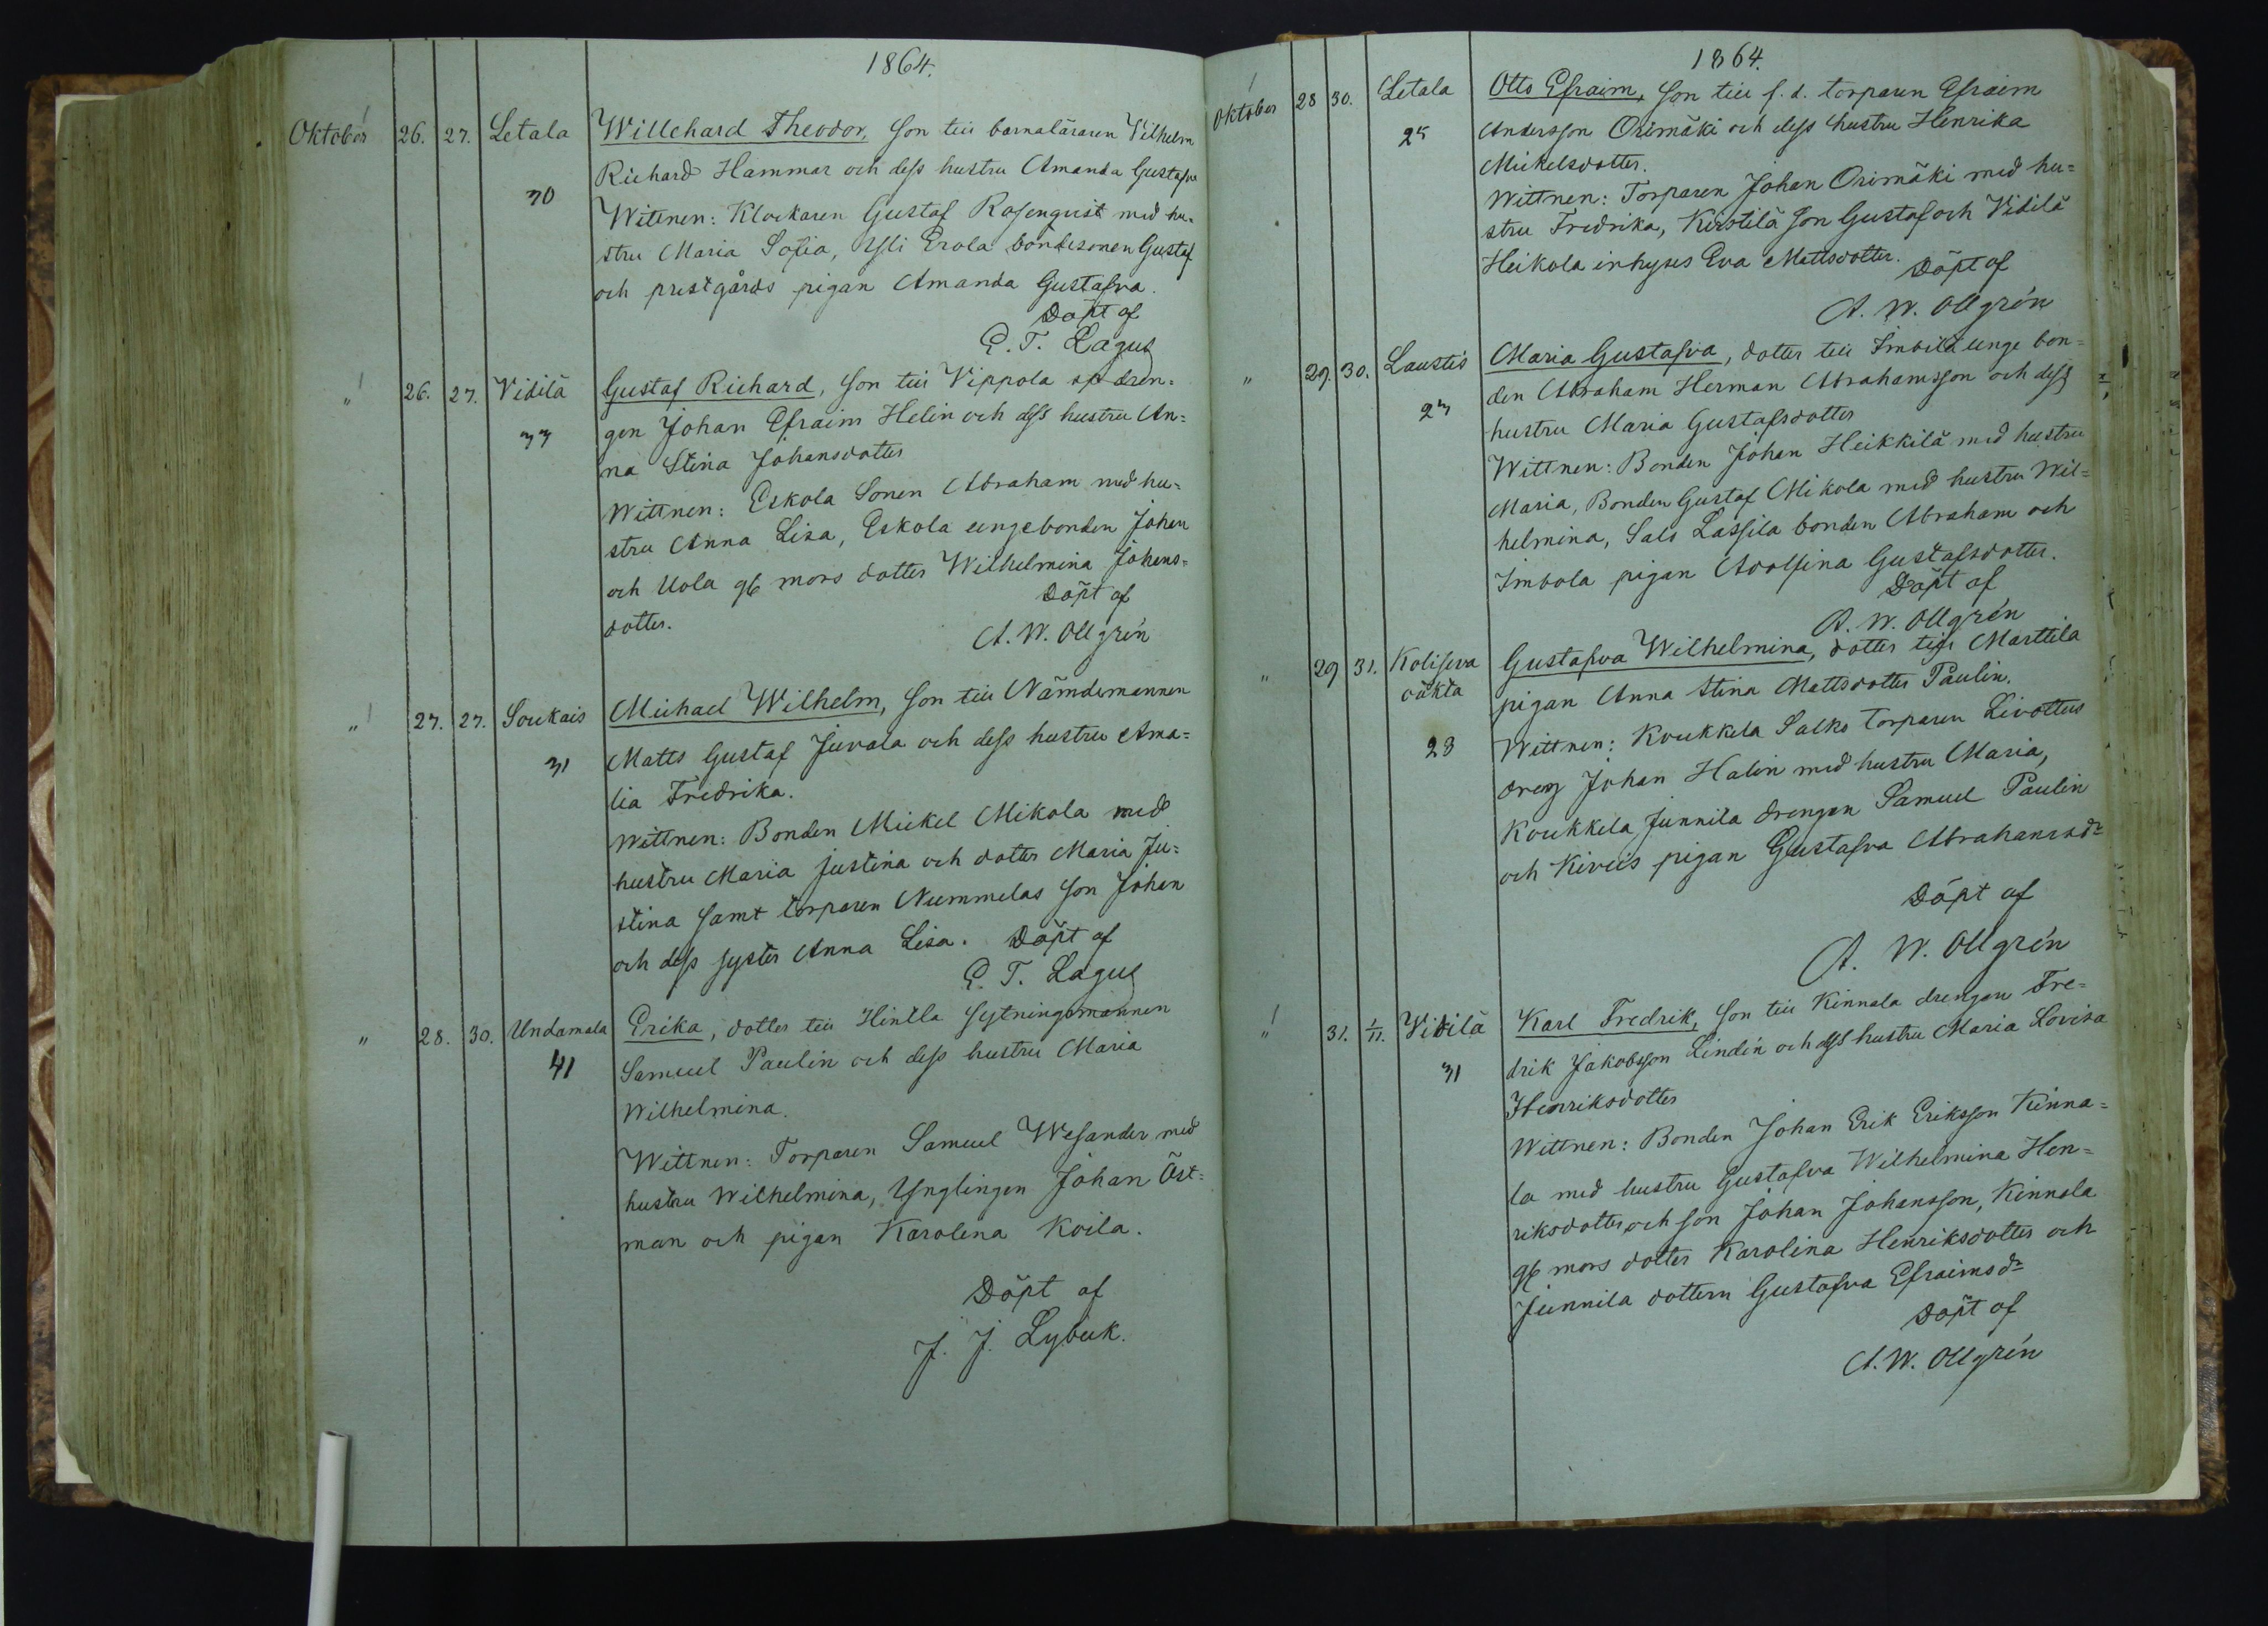 1864.
Oktober 26. 27. Letala Willehard Theodor, Son till barnaläraren Vilhelm
Richard Hammar och dess hustru Amanda Gustafva
30
Wittnen: Klockaren Gustaf Rosenqvist med hu=
stru Maria Sofia, Yli Erola bondesonen Gustaf
och prestgårds pigan Amanda Gustafva.
Döpt af
E. T. Lagus
" 26. 27. Vidilä Gustaf Richard, Son till Vippola sp dren=
33 gen Johan Efraim Helin och dess hustru An=
na Stina Johansdotter
Wittnen: Eskola Sonen Abraham med hu=
stru Anna Lisa, Eskola ungebonden Johan
och Uola gb mors dotter Wilhelmina Johans=
dotter.
Döpt af
A. W. Ollgrén
" 27. 27. Soukais Michael Wilhelm, Son till Nämdemannen
31 Matts Gustaf Juvala och dess hustru Ama=
lia Fredrika.
Wittnen: Bonden Mickel Mikola med
hustru Maria Justina och dotter Maria Ju=
stina samt torparen Nummelas son Johan
och dess syster Anna Lisa. Döpt af
E. T. Lagus
" 28. 30. Undamala Erika, dotter till Hintla sytningsmannen
41 Samuel Paulin och dess hustru Maria
Wilhelmina.
Wittnen: Torparen Samuel Wesander med
hustru Wilhelmina, Ynglingen Johan Öst=
man och pigan Karolina Koila.
Döpt af
J. J. Lybeck.
1864.
Oktober 28 30. Letala Otto Efraim, Son till f. d. torparen Efraim
25 Andersson Orimäki och dess hustru Henrika
Mickelsdotter.
Wittnen: Torparen Johan Orimäki med hu=
stru Fredrika, Kirstilä son Gustaf och Vidilä
Heikola inhyses Eva Mattsdotter. Döpt af
A. W. Ollgrén
" 29. 30. Laustis Maria Gustafva, dotter till Simbila unge bon=
den Abraham Herman Abrahamsson och dess
23 hustru Maria Gustafsdotter
Wittnen: Bonden Johan Heikkilä med hustru
Maria, Bonden Gustaf Mikola med hustru Wil=
helmina, Salo Lassila bonden Abraham och
Simbola pigan Adolfina Gustafsdotter.
Döpt af
A. W. Ollgrén
" 29 31. Koliseva Gustafva Wilhelmina, dotter till Marttila
oukta pigan Anna Stina Mattsdotter Paulin.
23 Wittnen: Koukkela Salko torparen Livottus
dreng Johan Halin med hustru Maria,
Koukkela Junnila drengen Samuel Paulin
och Kiviis pigan Gustafva Abrahamsdr
Döpt af
A. W. Ollgrén
" 31. 1/11. Vidilä Karl Fredrik, Son till Kinnala drengen Fre=
31 drik Jakobsson Lindén och dess hustru Maria Lovisa
Henriksdotter
Wittnen: Bonden Johan Erik Eriksson Kinna=
la med hustru Gustafva Wilhelmina Hen=
riksdotter och son Johan Johansson, Kinnala
gb mors dotter Karolina Henriksdotter och
Junnila dottern Gustafva Efraimsdr
Döpt af
A. W. Ollgrén